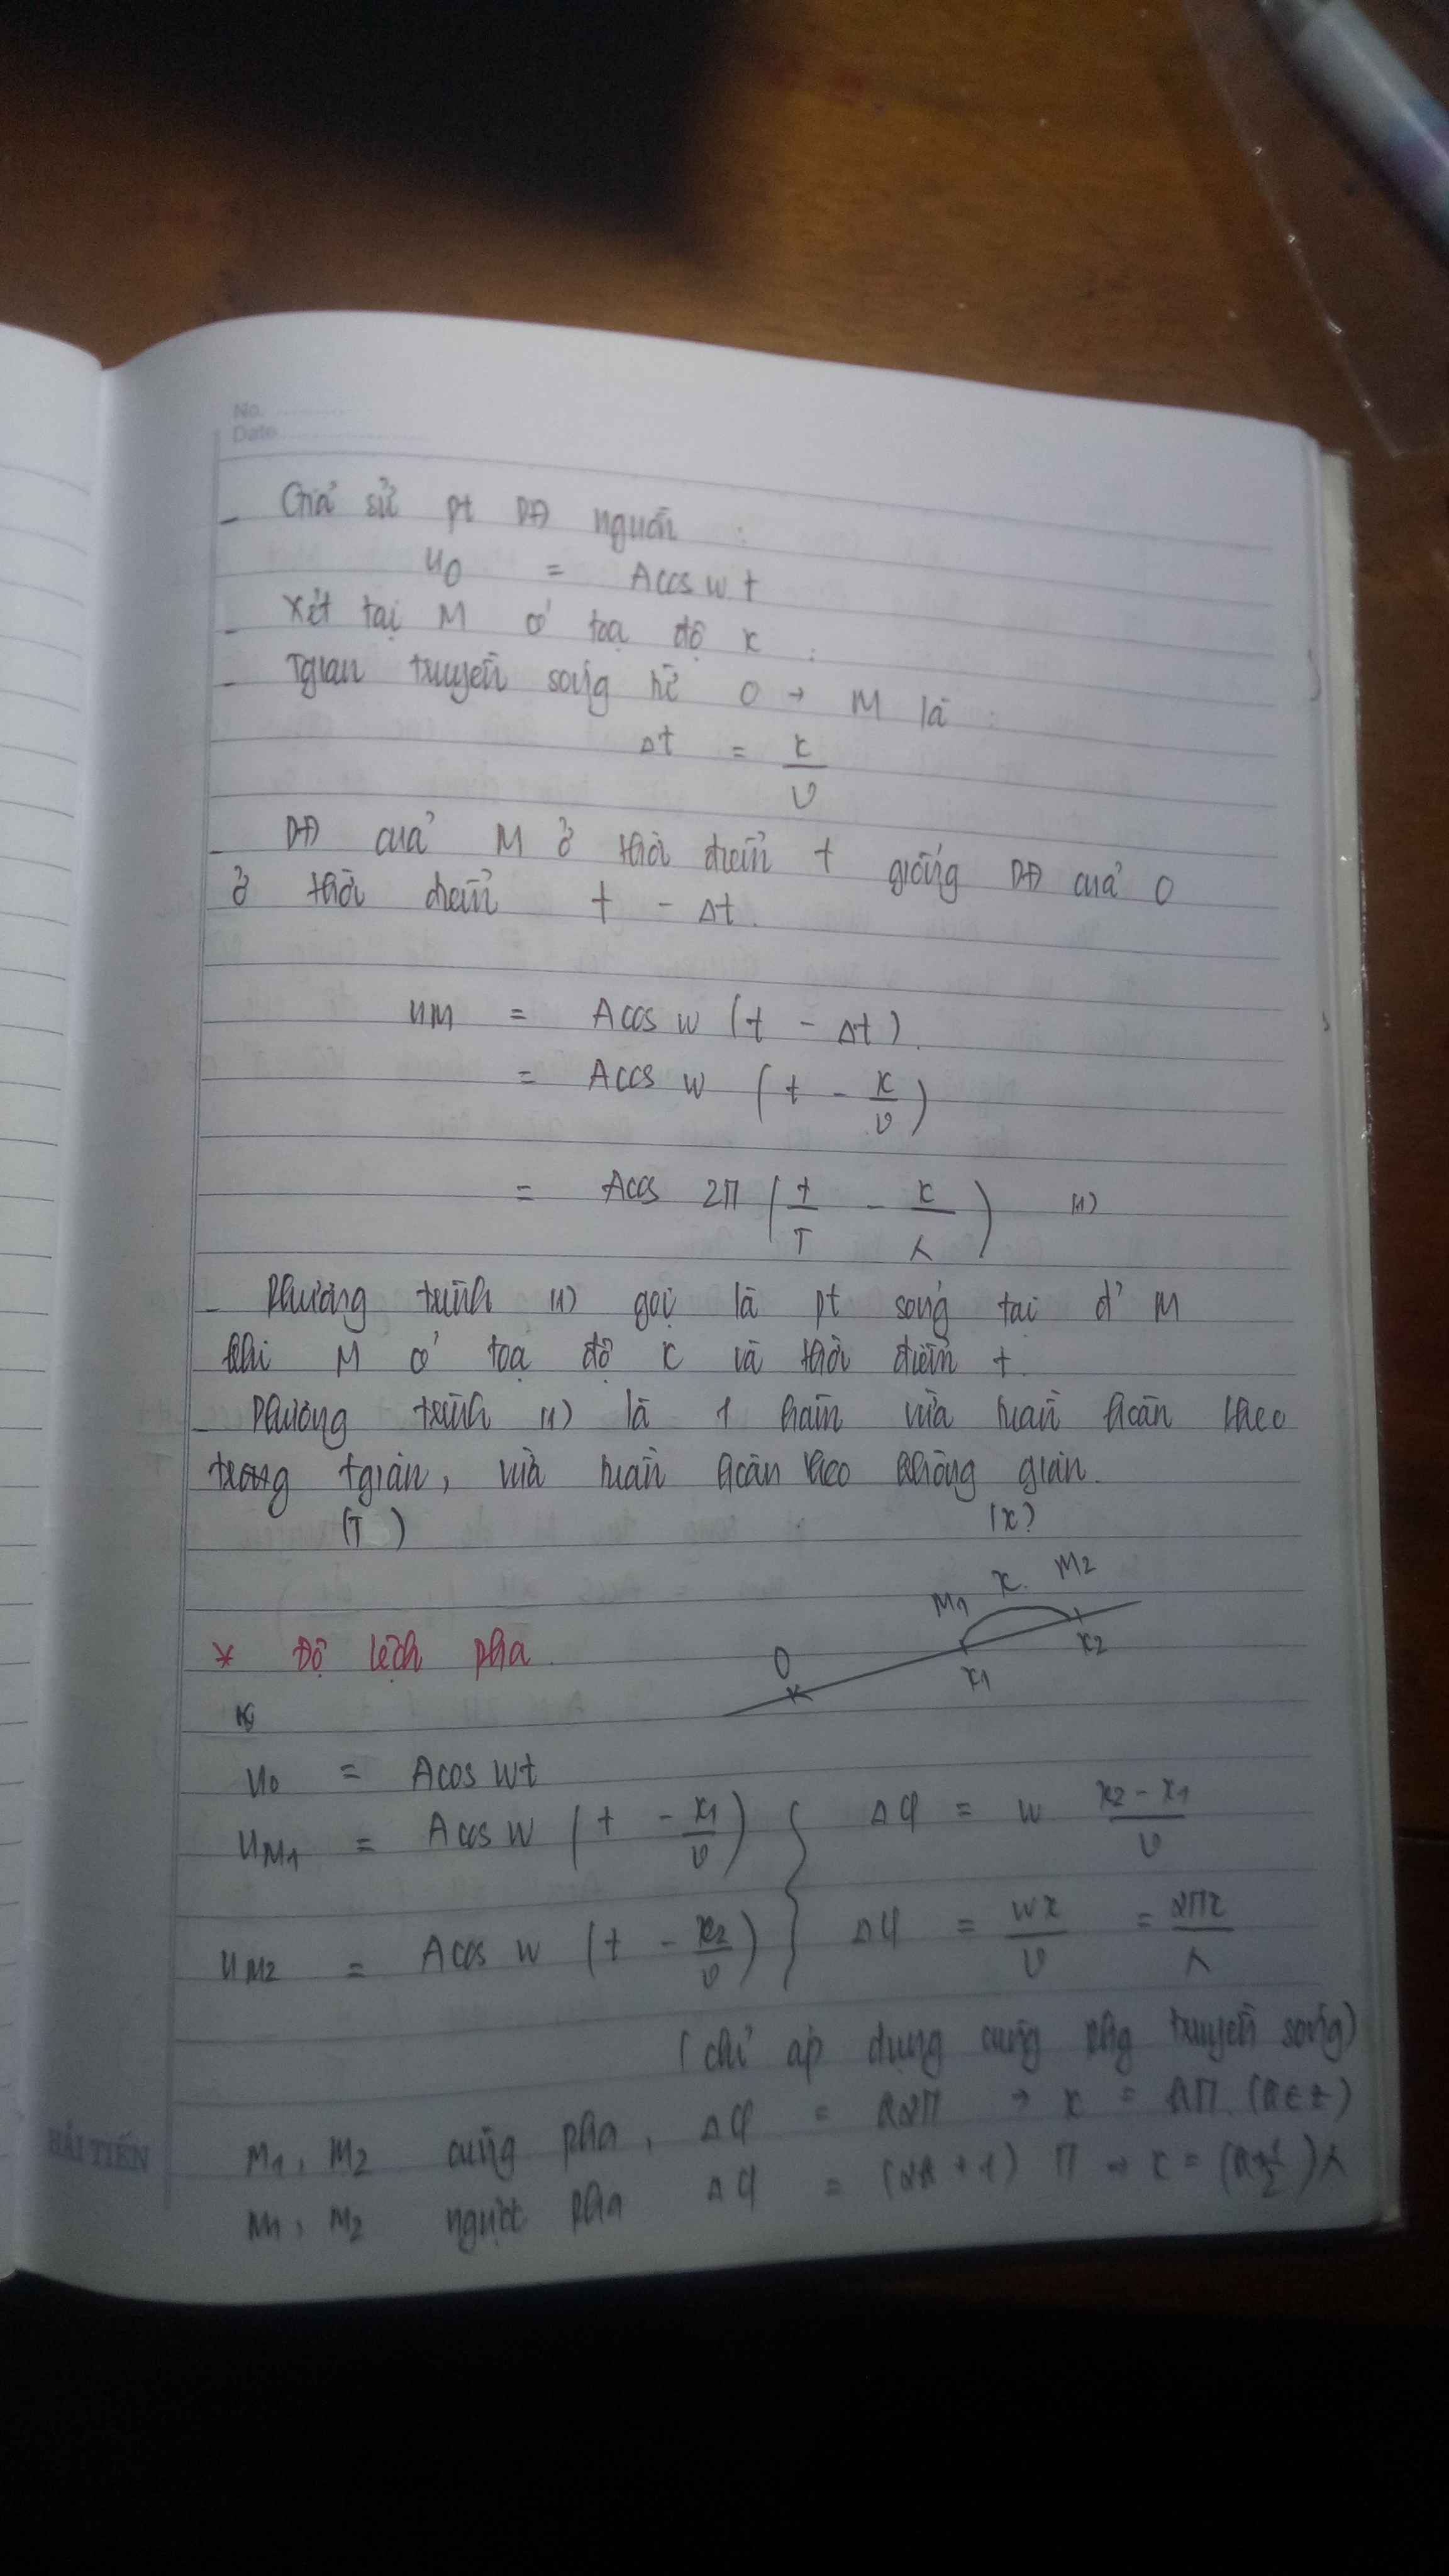 No.
Date
- Giả sử pt DĐ nguồn :
u0 = Acos wt
- Xét tại M có toạ độ x :
- Tgian truyền sóng từ O → M là :
Δt = x/v
- DĐ của M ở thời điểm t giống DĐ của O
ở thời điểm t - Δt.
uM = Acos w (t - Δt).
= Acos w (t - x/v)
= Acos 2π (t/T - x/λ) (1)
- Phương trình (1) gọi là pt sóng tại đ' M
khi M có toạ độ x và thời điểm t.
- Phương trình (1) là 1 hàm vừa tuần hoàn theo
trong tgian, vừa tuần hoàn theo không gian.
(T) (x)
M1 x. M2
* Độ lệch pha.
O x1 x2
u0 = Acos wt
uM1 = Acos w (t - x1/v) } Δφ = w (x2 - x1)/v
uM2 = Acos w (t - x2/v) } Δφ = wx/v = 2πx/λ
(chỉ áp dụng cùng phg truyền sóng)
M1, M2 cùng pha, Δφ = k2π → x = kπ. (k∈z)
M1, M2 ngược pha Δφ = (2k + 1) π → x = (k+1/2)λ
HẢI TIẾN